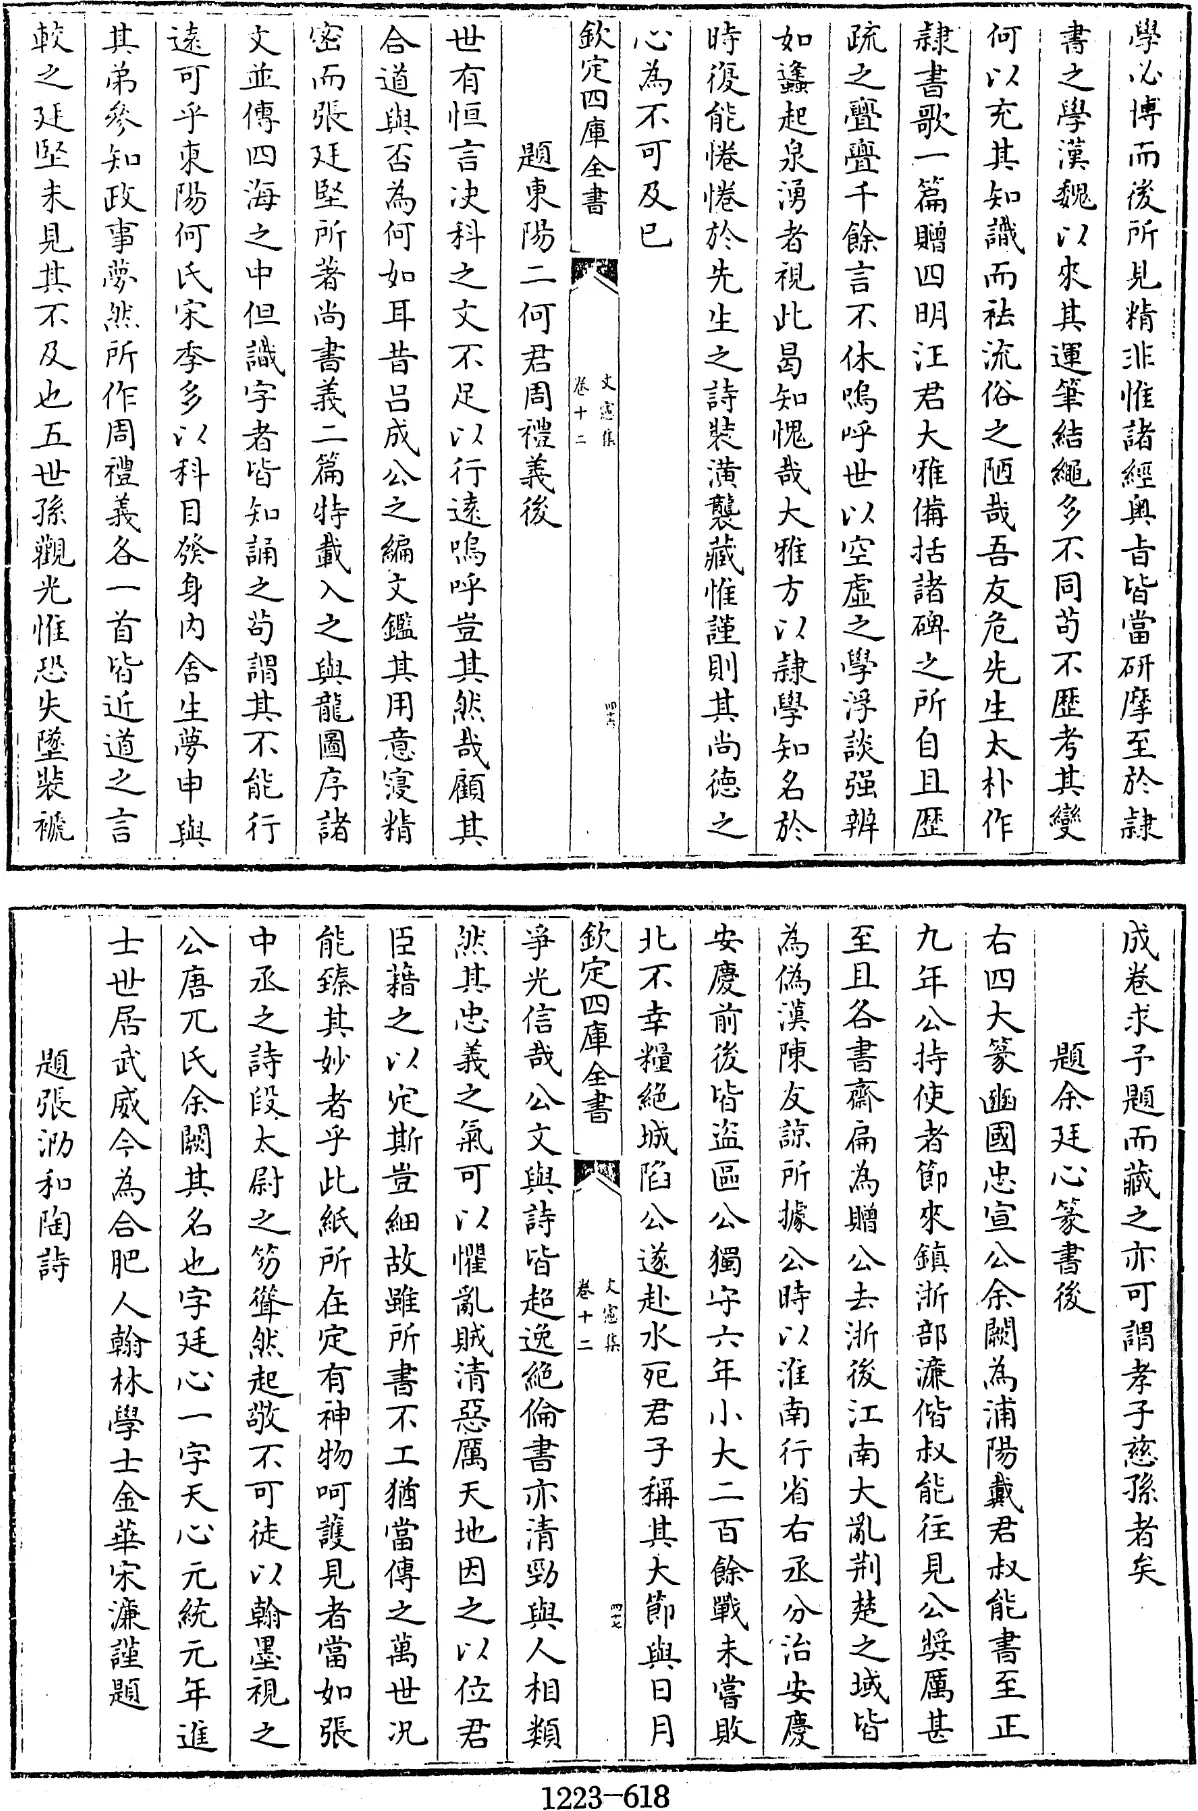 學必博而後所見精非惟諸經奥㫖皆當研摩至於隷
書之學漢魏以來其運筆結繩多不同茍不歴考其變
何以充其知識而祛流俗之陋哉吾友危先生太朴作
隷書歌一篇贈四明汪君大雅備括諸碑之所自且歴
疏之亹亹千餘言不休嗚呼世以空虚之學浮談强辨
如蠭起泉湧者視此曷知愧哉大雅方以隷學知名於
時復能惓惓於先生之詩裝潢襲藏惟謹則其尚德之
心為不可及已
欽定四庫全書
文憲集
卷十二
四十六
題東陽二何君周禮義後
世有恒言决科之文不足以行逺嗚呼豈其然哉顧其
合道與否為何如耳昔吕成公之編文鑑其用意寖精
宻而張廷堅所著尚書義二篇特載入之與龍圖序諸
文並傳四海之中但識字者皆知誦之茍謂其不能行
逺可乎東陽何氏宋季多以科目發身内舍生夢申與
其弟參知政事夢然所作周禮義各一首皆近道之言
較之廷堅未見其不及也五世孫觀光惟恐失墜裝褫
成卷求予題而藏之亦可謂孝子慈孫者矣
題余廷心篆書後
右四大篆豳國忠宣公余闕為浦陽戴君叔能書至正
九年公持使者節來鎮浙部濓偕叔能往見公奬厲甚
至且各書齋扁為贈公去浙後江南大亂荆楚之域皆
為偽漢陳友諒所據公時以淮南行省右丞分治安慶
安慶前後皆盗區公獨守六年小大二百餘戰未嘗敗
北不幸糧絶城陷公遂赴水死君子稱其大節與日月
欽定四庫全書
文憲集
卷十二
四十七
爭光信哉公文與詩皆超逸絶倫書亦清勁與人相類
然其忠義之氣可以懼亂賊清惡厲天地因之以位君
臣藉之以定斯豈細故雖所書不工猶當傳之萬世况
能臻其妙者乎此紙所在定有神物呵䕶見者當如張
中丞之詩段太尉之笏聳然起敬不可徒以翰墨視之
公唐兀氏余闕其名也字廷心一字天心元統元年進
士世居武威今為合肥人翰林學士金華宋濓謹題
題張泐和陶詩
1223-618